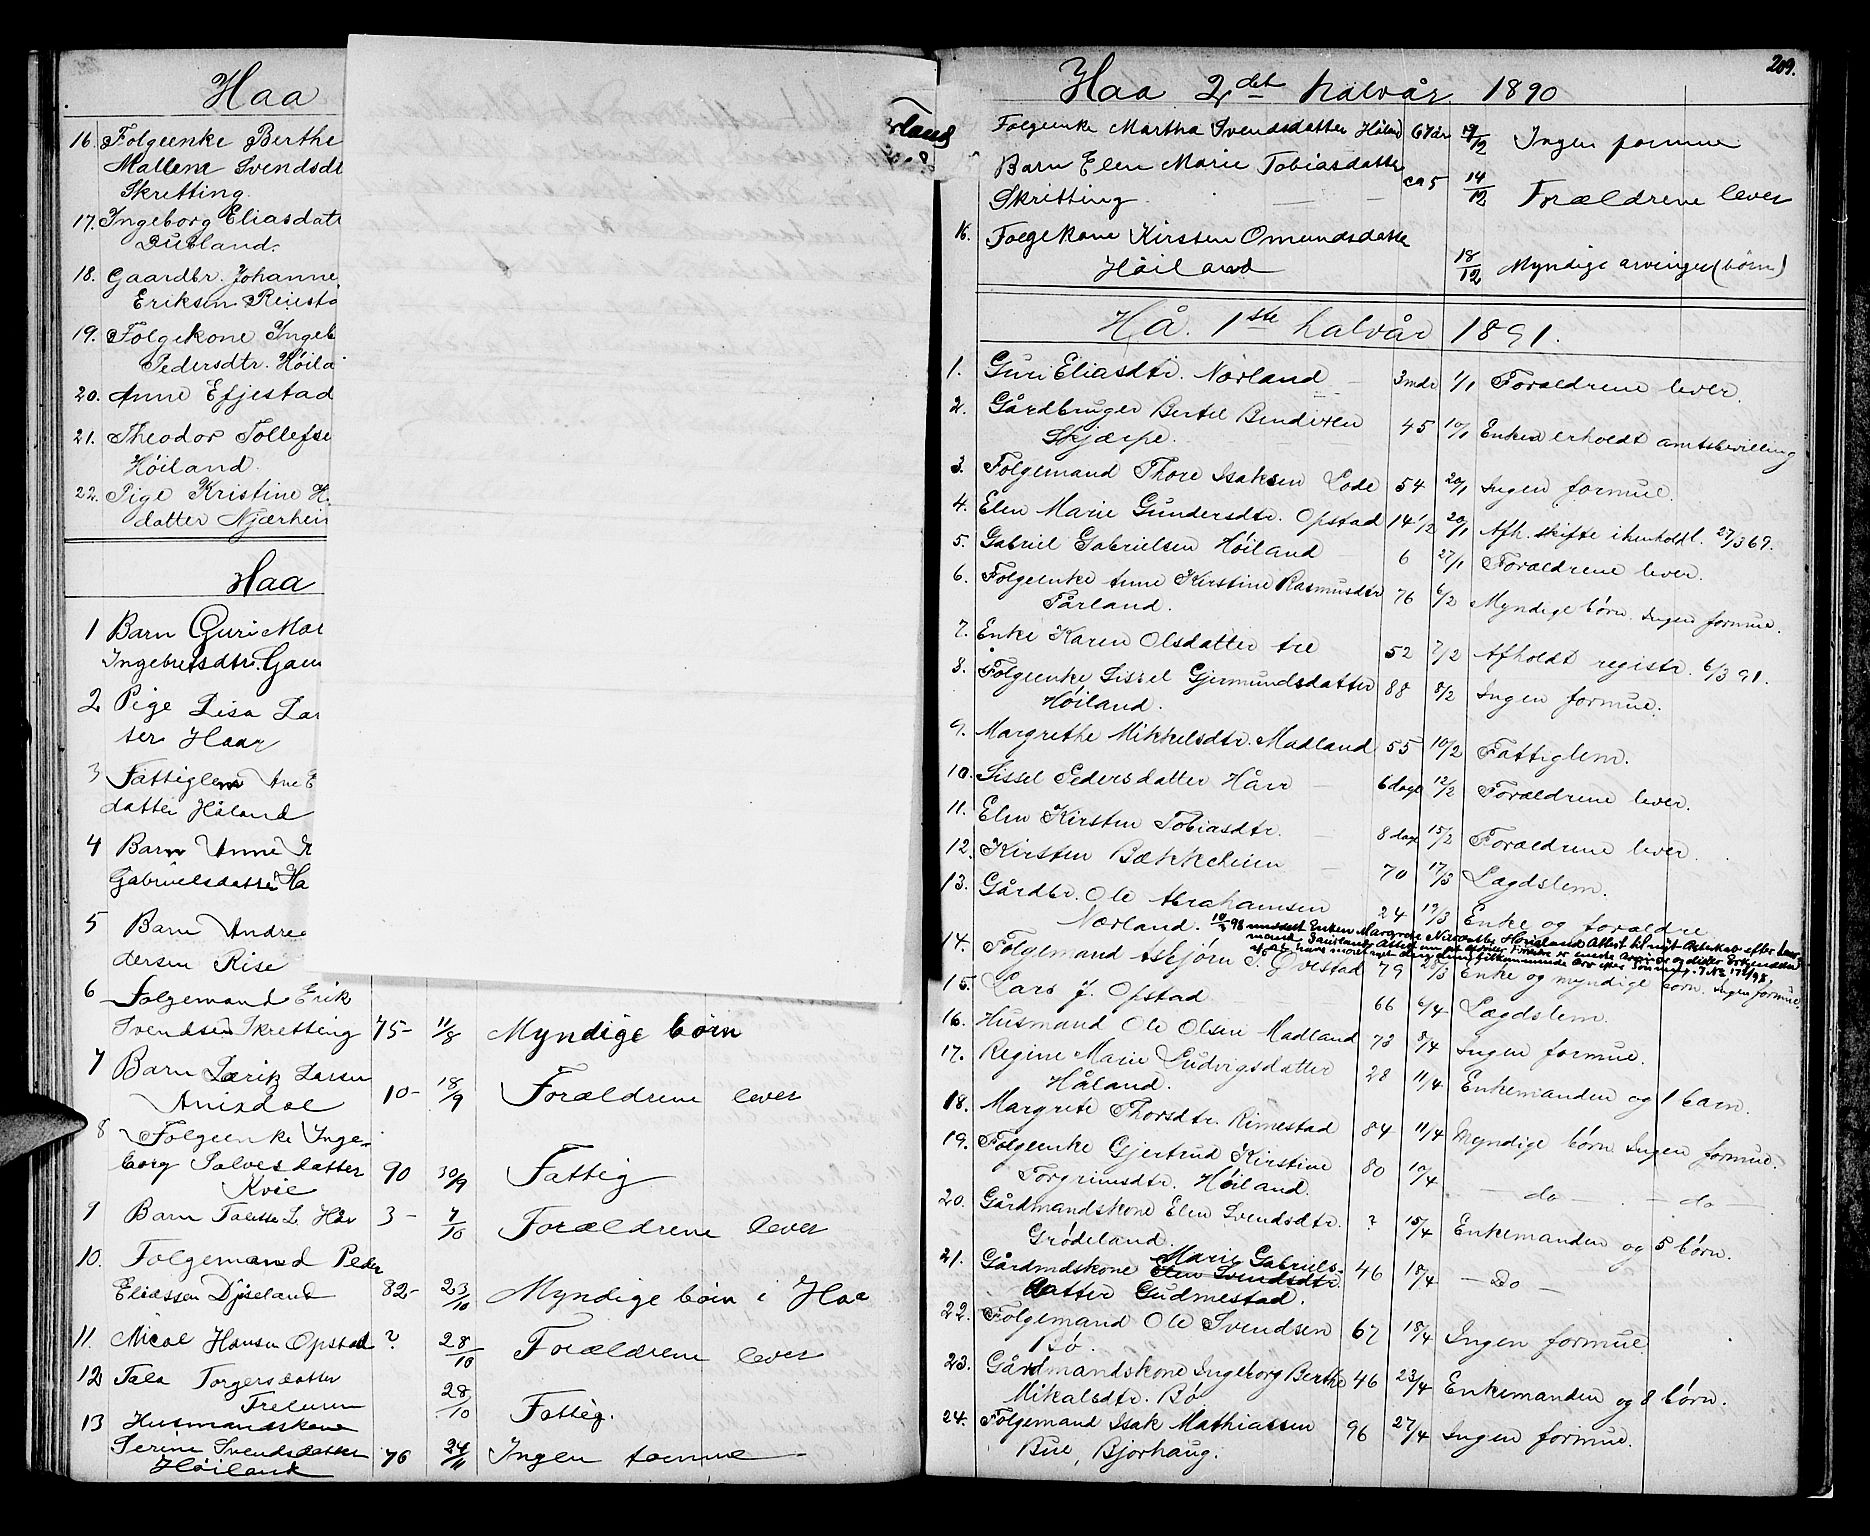 Haa
16. Folgeenke Berthe
Mallene Svendsdt
Skretting.
17. Ingeborg Eliasdatt
Bueland.
18. Gaardbr. Johanne
Eriksen Reiesta
19. Folgekone Ingeb
Pedersdtr. Höila
20. Anne Efjestad
21. Theodor Tollefse
Höiland.
22. Pige Kristine H
datter Njærhein
Haa
1 Barn Guri Mar
Ingebretsdtr. Gam
2 Pige Lisa Lar
ter Haar
3 Fattiglem Ane E
datter Håland
4 Barn Anne
Gabrielsdatter Ha
5 Barn Andrea
dersen Rise
6 Folgemand Erik
Svendsen Skretting 75- 11/8 Myndige börn
7 Barn Lærik Larsen
Anisdal 10- 18/9 Forældrene lever
8 Folgeenke Inge-
borg Salvesdatter 90 30/9 Fattig
Kvie
9 Barn Talette L. Hår 3- 7/10 Forældrene lever
10. Folgemand Peder
Eliassen Djseland 82- 23/10 Myndige börn i Haa
11. Nicol Hansen Opstad ? 28/10 Forældrene lever
12 Tala Torgersdatter
28/10 Fattig.
13 Husmandskone
Serine Svendsdatter 76 24/11 Ingen formue
Höiland
rland
209.
Haa 2det halvår 1890
Folgeenke Martha Svendsdatter Höiland 67 år 12 Ingen formue
Barn Elen Marie Tobiasdatter
Skretting. ca 5 14/12 Forældrene lever
16. Folgekone Kirsten Omundsdatter
Höiland 18/12 Myndige arvinger (börn)
Hå. 1ste halvår 1891.
1. Guri Eliasdtr. Nærland 3 mdr 1/1 Forældrene lever.
2. Gårdbruger Bertel Bendixen
Skjærpe. 45 10/1 Enken erholdt amtsbevilling
3. Folgemand Thore Isaksen Lode 54 20/1 Ingen formue.
4. Elen Marie Gundersdtr. Opstad 14 1/2 20/1 Afh. skifte i henhold t. 27/3 69.
5. Gabriel Gabrielsen Höiland 6 27/1 Forældrene lever.
6. Folgeenke Anne Kirstine Rasmusdtr 76 6/2 Myndige börn. Ingen formue.
Tårland.
7. Enke Karen Olsdatter tre 52 7/2 Afholdt registr. 6/3 91.
8. Folgeenke Sissel Gjermundsdatter 88 8/2 Ingen formue.
Höiland.
9. Margrethe Mikkelsdtr. Madland 55 10/2 Fattiglem.
10. Sissel Pedersdatter Hårr 6 dage 12/2 Forældrene lever.
11. Elen Kirsten Tobiasdtr. 8 dage 15/2 Forældrene lever.
12. Kirsten Bækkeheien 70 17/3 Lægdslem.
13. Gårdbr. Ole Abrahamsen 24 19/3 Enke og forældre
Nærland. 98 Enken Attest til nyt Ægteskab efter
14. Folgemand Asbjörn S. Övestad 79 /3 Enke og myndige börn. Ingen formue.
15. Lars J. Opstad 66 6/4 Lægdslem.
16. Husmand Ole Olsen Madland 73 8/4 Ingen formue.
17. Regine Marie Ludvigsdatter 28 11/4 Enkemanden og 1 barn.
Håland.
18. Margrete Thorsdtr. Rimestad 84 11/4 Myndige börn Ingen formue.
19. Folgeenke Gjertrud Kirstine 80 17/4 - do - - do -
Torgrimsdtr. Höiland.
20. Gårdmandskone Elen Svendsdtr. ? 15/4 Enkemanden og 5 börn.
Grödeland.
21. Gårdmdskone Elen Svendsdtr Marie Gabriels- 46 18/4 - Do -
datter Gudmestad.
22. Folgemand Ole Svendsen 67 18/4 Ingen formue
Bö.
23. Gårdmandskone Ingeborg Berthe 46 23/4 Enkemanden og 8 börn.
Mikalsdtr. Bö
24. Folgemand Isak Mathiassen 96 27/4 Ingen formue.
Bue, Bjorhaug.